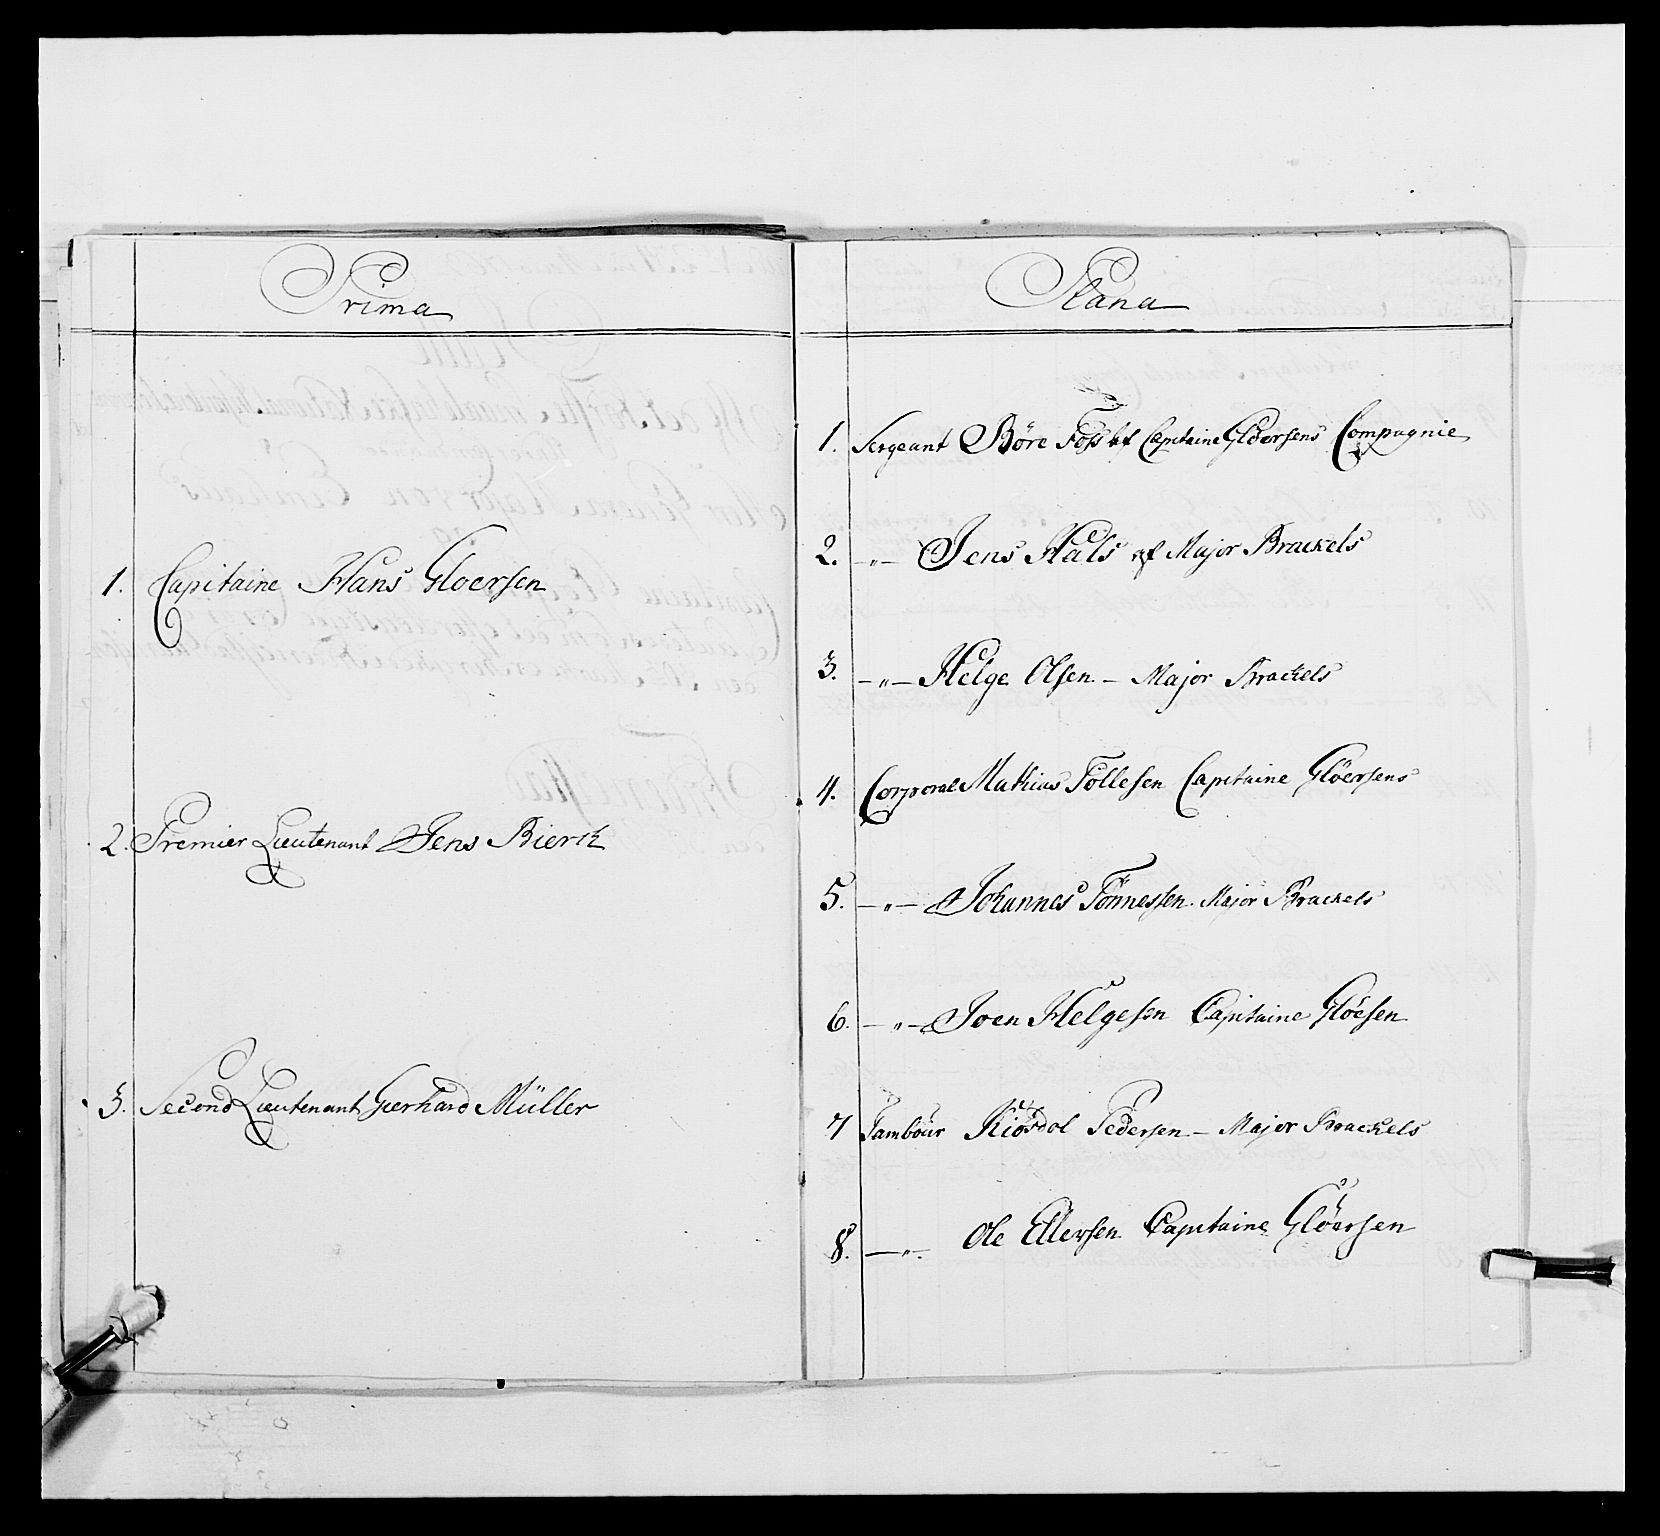 Prima
1. Capitaine Hans Gloersen
2. Premier Lieutenant Jens Bierck
3. Second Lieutenant Gerhard Müller
Plana
1. Sergeant Böre Foss af Capitaine Gloersens Compagnie
2. -„- Jens Hals af Major Brackels
3. -„- Helge Olsen - Major Brackels
4. Corporal Mathias Tollesen Capitaine Glöersens
5. -„- Johannes Tönnessen Major Brackels
6. -„- Joen Helgesen Capitaine Glöesen
7 Tambour Pedersen - Major Brackels
8. -„- Ole Ellersen Capitaine Glöersen